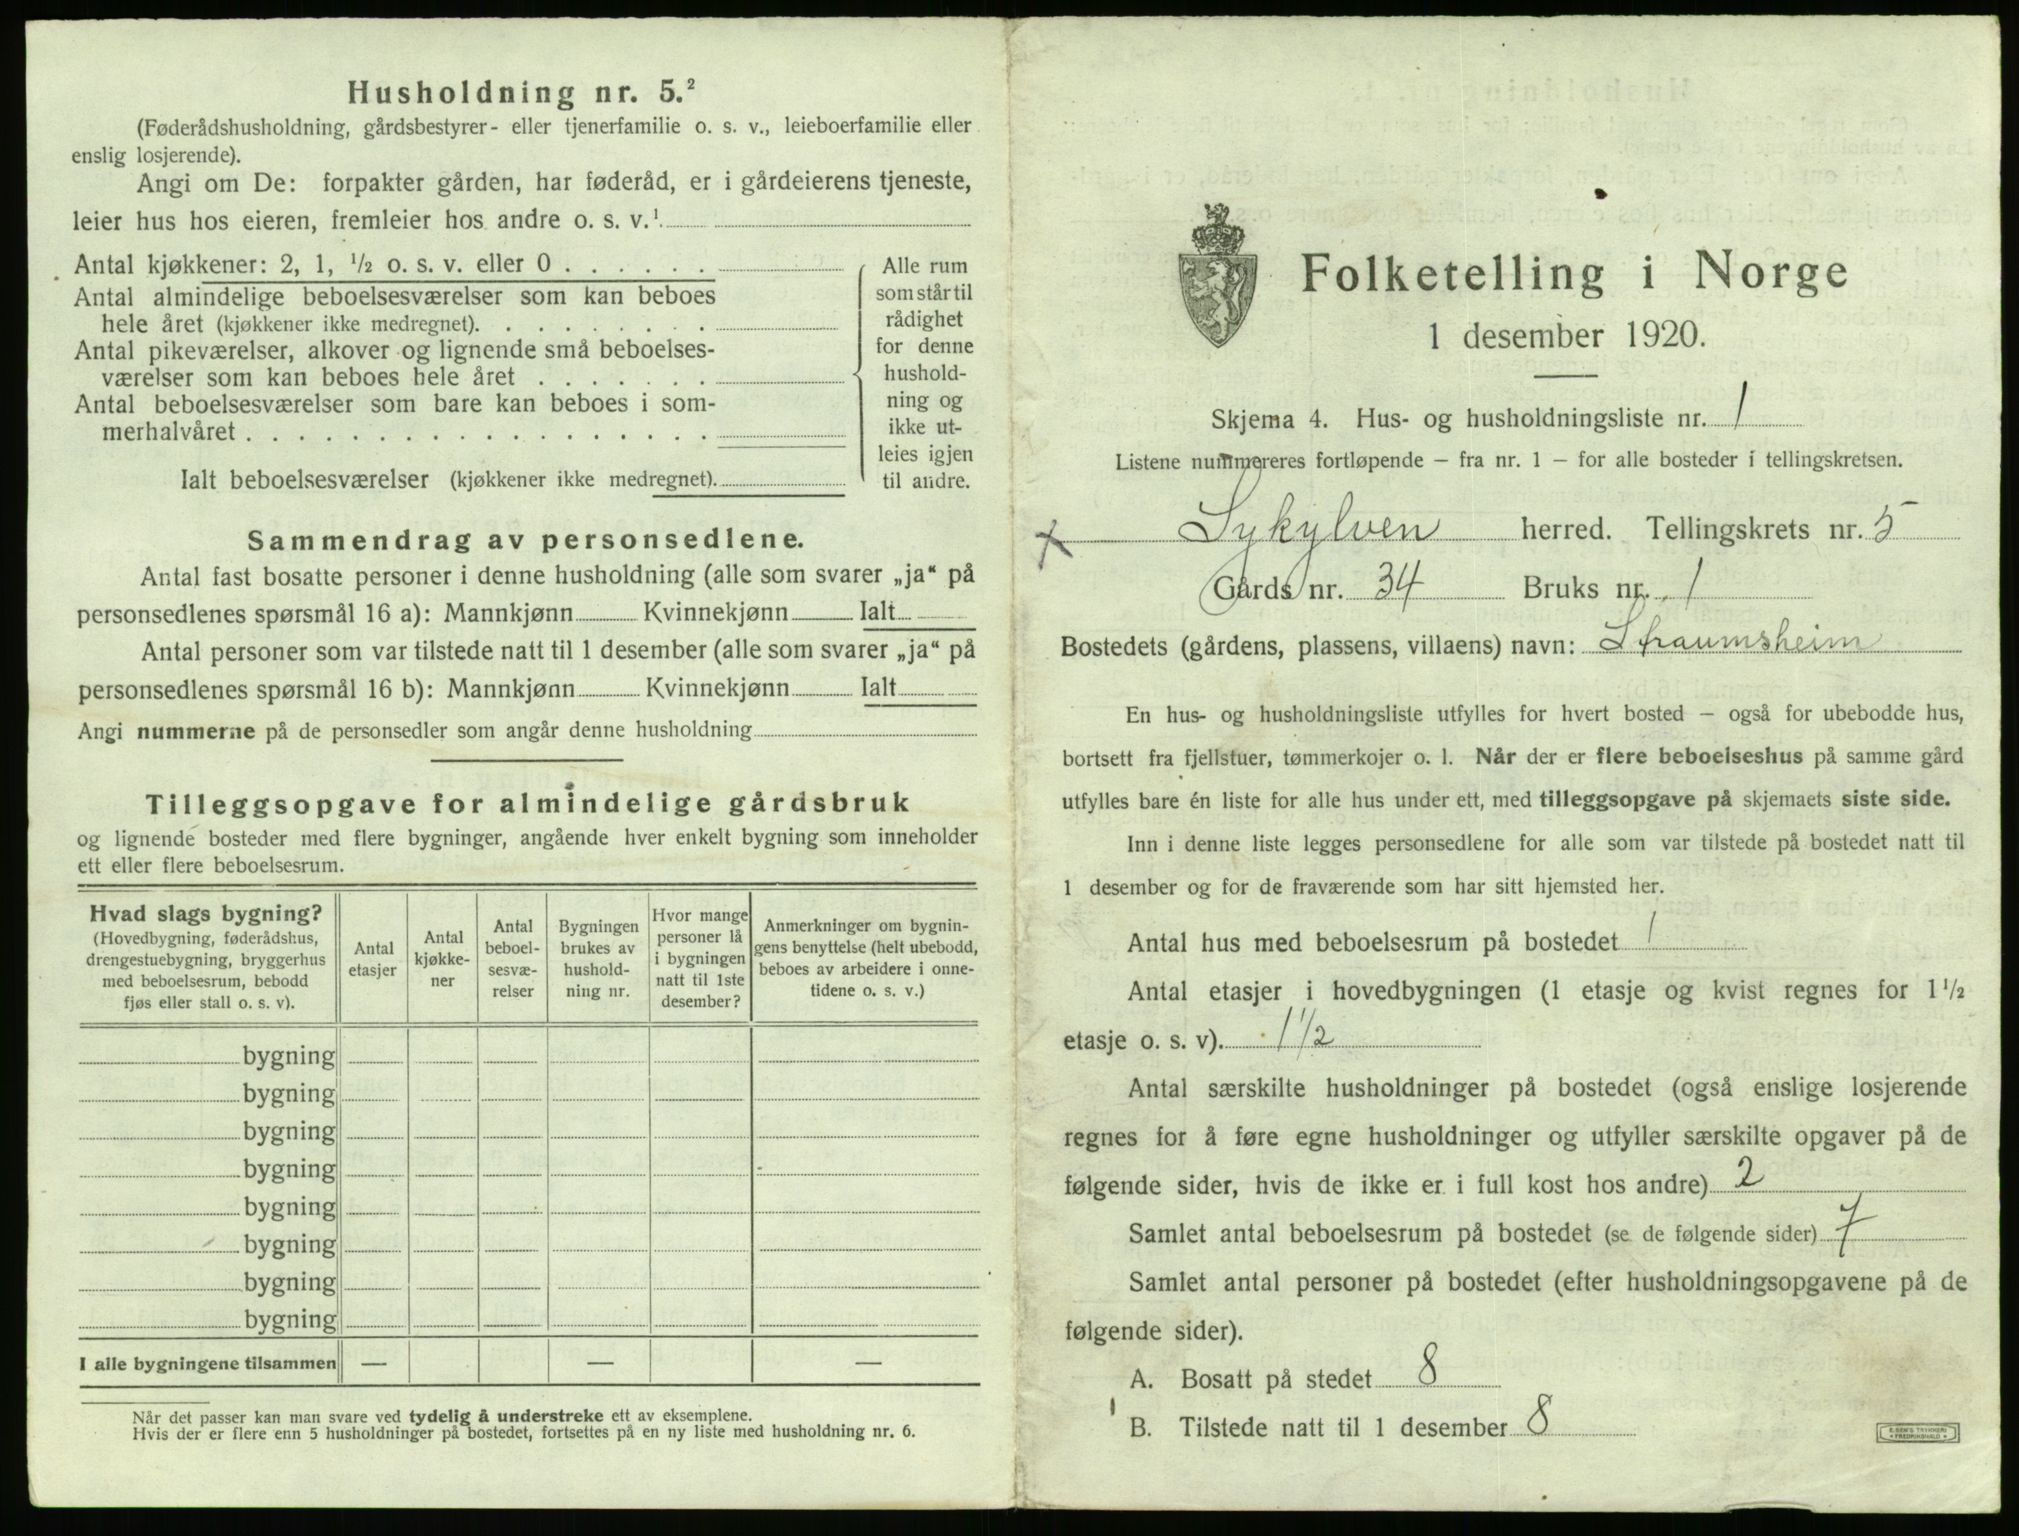 Husholdning nr. 5.²
(Føderådshusholdning, gårdsbestyrer- eller tjenerfamilie o. s. v., leieboerfamilie eller
enslig losjerende).
Angi om De: forpakter gården, har føderåd, er i gårdeierens tjeneste,
leier hus hos eieren, fremleier hos andre o. s. v.¹
Antal kjøkkener: 2, 1, ½ o. s. v. eller 0 . . . . . .
Antal almindelige beboelsesværelser som kan beboes
hele året (kjøkkener ikke medregnet). . . . . . . . .
Antal pikeværelser, alkover og lignende små beboelses-
værelser som kan beboes hele året . . . . . . .
Antal beboelsesværelser som bare kan beboes i som-
merhalvåret . . . . . . . . . . . . . . . . . .
Ialt beboelsesværelser (kjøkkener ikke medregnet).
Alle rum
som står til
rådighet
for denne
hushold-
ning og
ikke ut-
leies igjen
til andre.
Sammendrag av personsedlene.
Antal fast bosatte personer i denne husholdning (alle som svarer „ja“ på
personsedlenes spørsmål 16 a): Mannkjønn Kvinnekjønn Ialt
Antal personer som var tilstede natt til 1 desember (alle som svarer „ja“ på
personsedlenes spørsmål 16 b): Mannkjønn Kvinnekjønn Ialt
Angi nummerne på de personsedler som angår denne husholdning
Tilleggsopgave for almindelige gårdsbruk
og lignende bosteder med flere bygninger, angående hver enkelt bygning som inneholder
ett eller flere beboelsesrum.
Hvad slags bygning?
(Hovedbygning, føderådshus,
drengestuebygning, bryggerhus
med beboelsesrum, bebodd
fjøs eller stall o. s. v).
Antal
etasjer
Antal
kjøkke-
ner
Antal
beboel-
sesvæ-
relser
Bygningen
brukes av
hushold-
ning nr.
Hvor mange
personer lå
i bygningen
natt til 1ste
desember?
Anmerkninger om bygnin-
gens benyttelse (helt ubebodd,
beboes av arbeidere i onne-
tidene o. s. v.)
bygning
bygning
bygning
bygning
bygning
bygning
bygning
bygning
I alle bygningene tilsammen — — —
Når det passer kan man svare ved tydelig å understreke ett av eksemplene.
Hvis der er flere enn 5 husholdninger på bostedet, fortsettes på en ny liste med husholdning nr. 6.
Folketelling i Norge
1 desember 1920.
Skjema 4. Hus- og husholdningsliste nr. 1
Listene nummereres fortløpende – fra nr. 1 – for alle bosteder i tellingskretsen.
Sykylven herred. Tellingskrets nr. 5
Gårds nr. 34 Bruks nr. 1
Bostedets (gårdens, plassens, villaens) navn: Straumsheim
En hus- og husholdningsliste utfylles for hvert bosted – også for ubebodde hus,
bortsett fra fjellstuer, tømmerkojer o. l. Når der er flere beboelseshus på samme gård
utfylles bare én liste for alle hus under ett, med tilleggsopgave på skjemaets siste side.
Inn i denne liste legges personsedlene for alle som var tilstede på bostedet natt til
1 desember og for de fraværende som har sitt hjemsted her.
Antal hus med beboelsesrum på bostedet 1
Antal etasjer i hovedbygningen (1 etasje og kvist regnes for 1½
etasje o. s. v). 1½
Antal særskilte husholdninger på bostedet (også enslige losjerende
regnes for å føre egne husholdninger og utfyller særskilte opgaver på de
følgende sider, hvis de ikke er i full kost hos andre) 2
Samlet antal beboelsesrum på bostedet (se de følgende sider) 7
Samlet antal personer på bostedet (efter husholdningsopgavene på de
følgende sider).
A. Bosatt på stedet 8
B. Tilstede natt til 1 desember 8